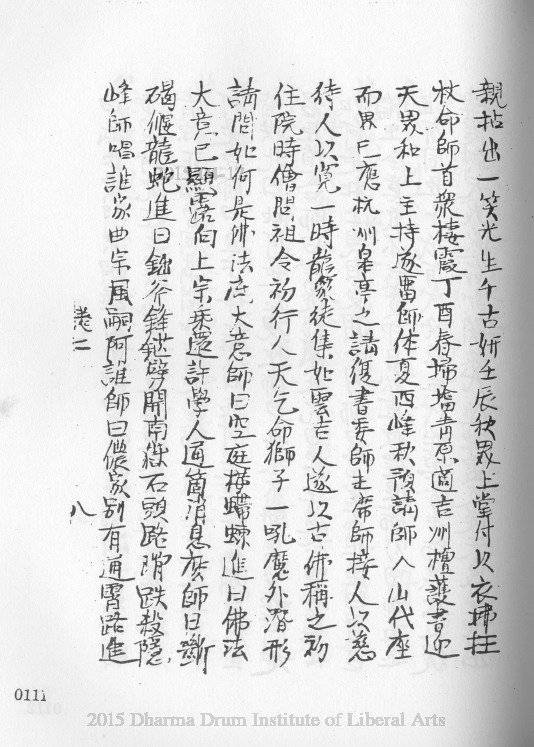 親拈出一笑光生千古妍壬辰秋罢上堂付以衣拂拄
杖命師首衆棲霞丁酉春掃塔青原适吉州檀護書迎
天界和上主持遂畱師休夏西峰秋預請師入山代座
而男巳應杭州皐亭之請復書委師主席師接人以慈
待人以寬一時龍象徒集如雲吉人遂以古佛稱之初
住院時僧問祖令初行人天乞命獅子一吼魔外潛形
請問如何是佛法庅大意師曰空王樓螮蝀進曰佛法
大意巳顯露向上宗乘還許學人通箇消息庅師曰斷
碣偃龍蛇進曰鈯斧鋒鋩劈開南嶽石頭路滑跌殺隱
峰師唱誰家曲宗風嗣阿誰師曰儂家別有通霄路進
卷二 八
0111
2015 Dharma Drum Institute of Liberal Arts